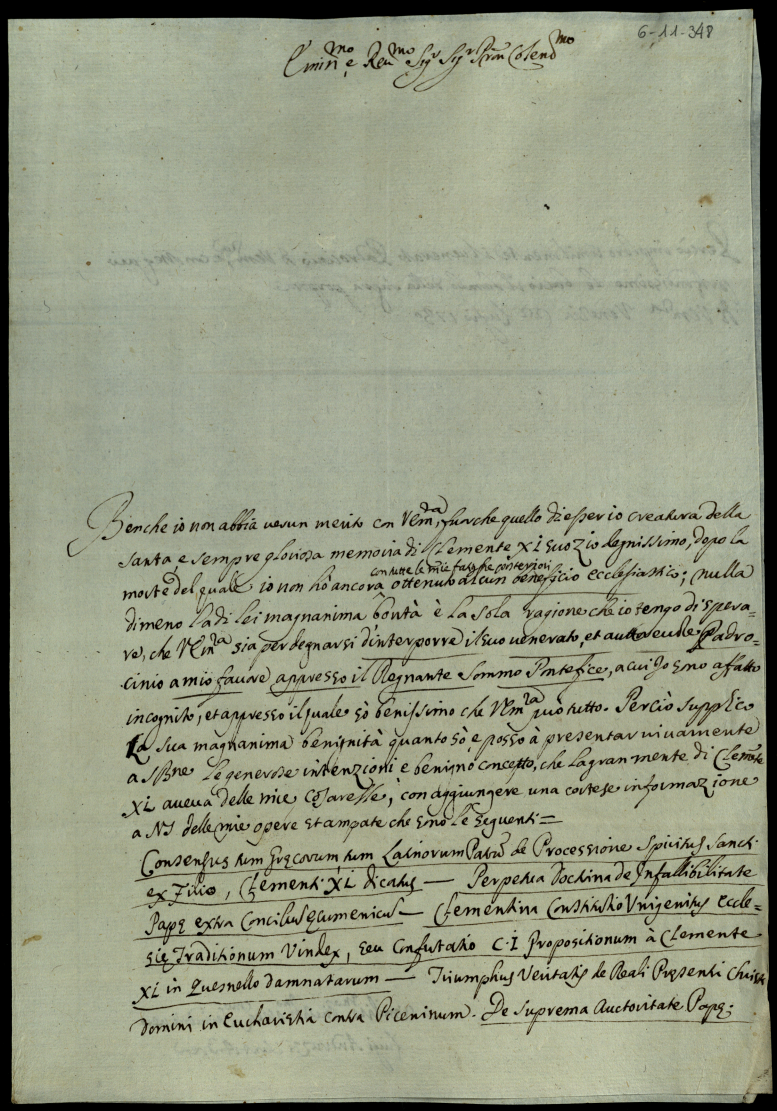 6-11-348
Emin.mo e Reu.mo Sig.r Sig.r Pron Colend.mo
Benche io non abbia uerun merito con VEm.za, fuorche quello di esser io creatura della
santa, e sempre gloriosa memoria di Clemente XI suo zio degnissimo, dopo la
con tutte le mie fatighe posteriori
morte del quale io non hò ancora ottenuto alcun beneficio ecclesiastico; nulla
dimeno la di lei magnanima bontà è la sola ragione che io tengo di spera-
re, che VEm.za sia per degnarsi d'interporre il suo uenerato, et auttoreuole Padro-
cinio a mio fauore appresso il Regnante Sommo Pontefice, a cui Io sono affatto
incognito, et appresso il quale sò benissimo che VEm.za può tutto. Perciò supplico
la sua magnanima benignità quanto sò, e posso à presentar uiuamente
a SBne le generose intenzioni e benigno concetto, che la gran mente di Clem.te
XI aueua delle mie cosarelle; con aggiungere una cortese informazione
a NS delle mie opere stampate che sono le seguenti =
Consensus tum Gręcorum tum Latinorum Patrū de Processione Spiritus Sancti
ex Filio, Clementi XI dicatus — Perpetua Doctrina de Infallibilitate
Papę extra Concilius Ecumenicus — Clementina Constitutio Unigenitus Eccle=
się Traditionum Vindex, seu Confutatio C.I Propositionum à Clemente
XI in Quesnello damnatarum — Triumphus Veritatis de Reali Pręsenti Christi
Domini in Eucharistia contra Piceninum. De Suprema Auctoritate Papę;